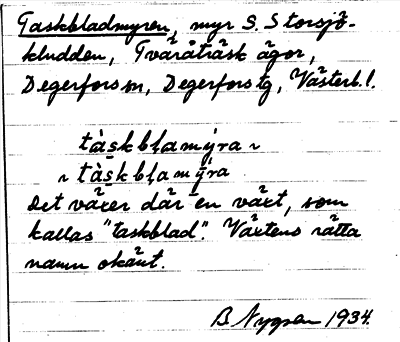 Taskbladmyren, myr S. Storsjö-
kludden, Tvåråträsk ägor,
Degerfors sn, Degerfors tg, Västerb. l.
tàskbḷamýra ~
~ tàskbḷamȳra
Det växer där en växt, som
kallas "taskblad". Växtens rätta
namn okänt.
B Nygren 1934.